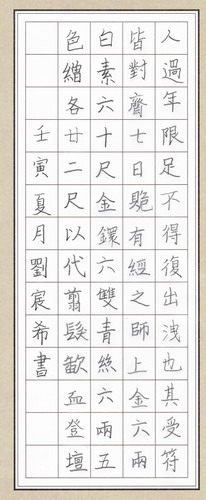 人過年限足不得復出洩也其受符
皆對齋七日貺有經之師上金六兩
白素六十尺金鐶六雙青絲六兩五
色繒各廿二尺以代翦髮歃血登壇
壬寅夏月劉宸希書